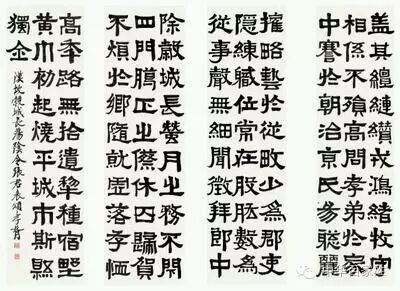 盖其繵縺缵戎鴻緒牧守
相係不殞高問孝弟於家
中謇於朝治京氏易聰麗
權略藝於從畋少為郡吏
隱練職位常在股肱數為
從事聲無細聞徵拜郎中
除穀城長蠶月之務不閉
四門臘正之傺休囚歸賀
不煩於鄉隨就虛落存恤
高年路無拾遺犁種宿野
黃巾初起燒平城市斯縣
獨全
漢故穀城長蕩陰令張君表頌